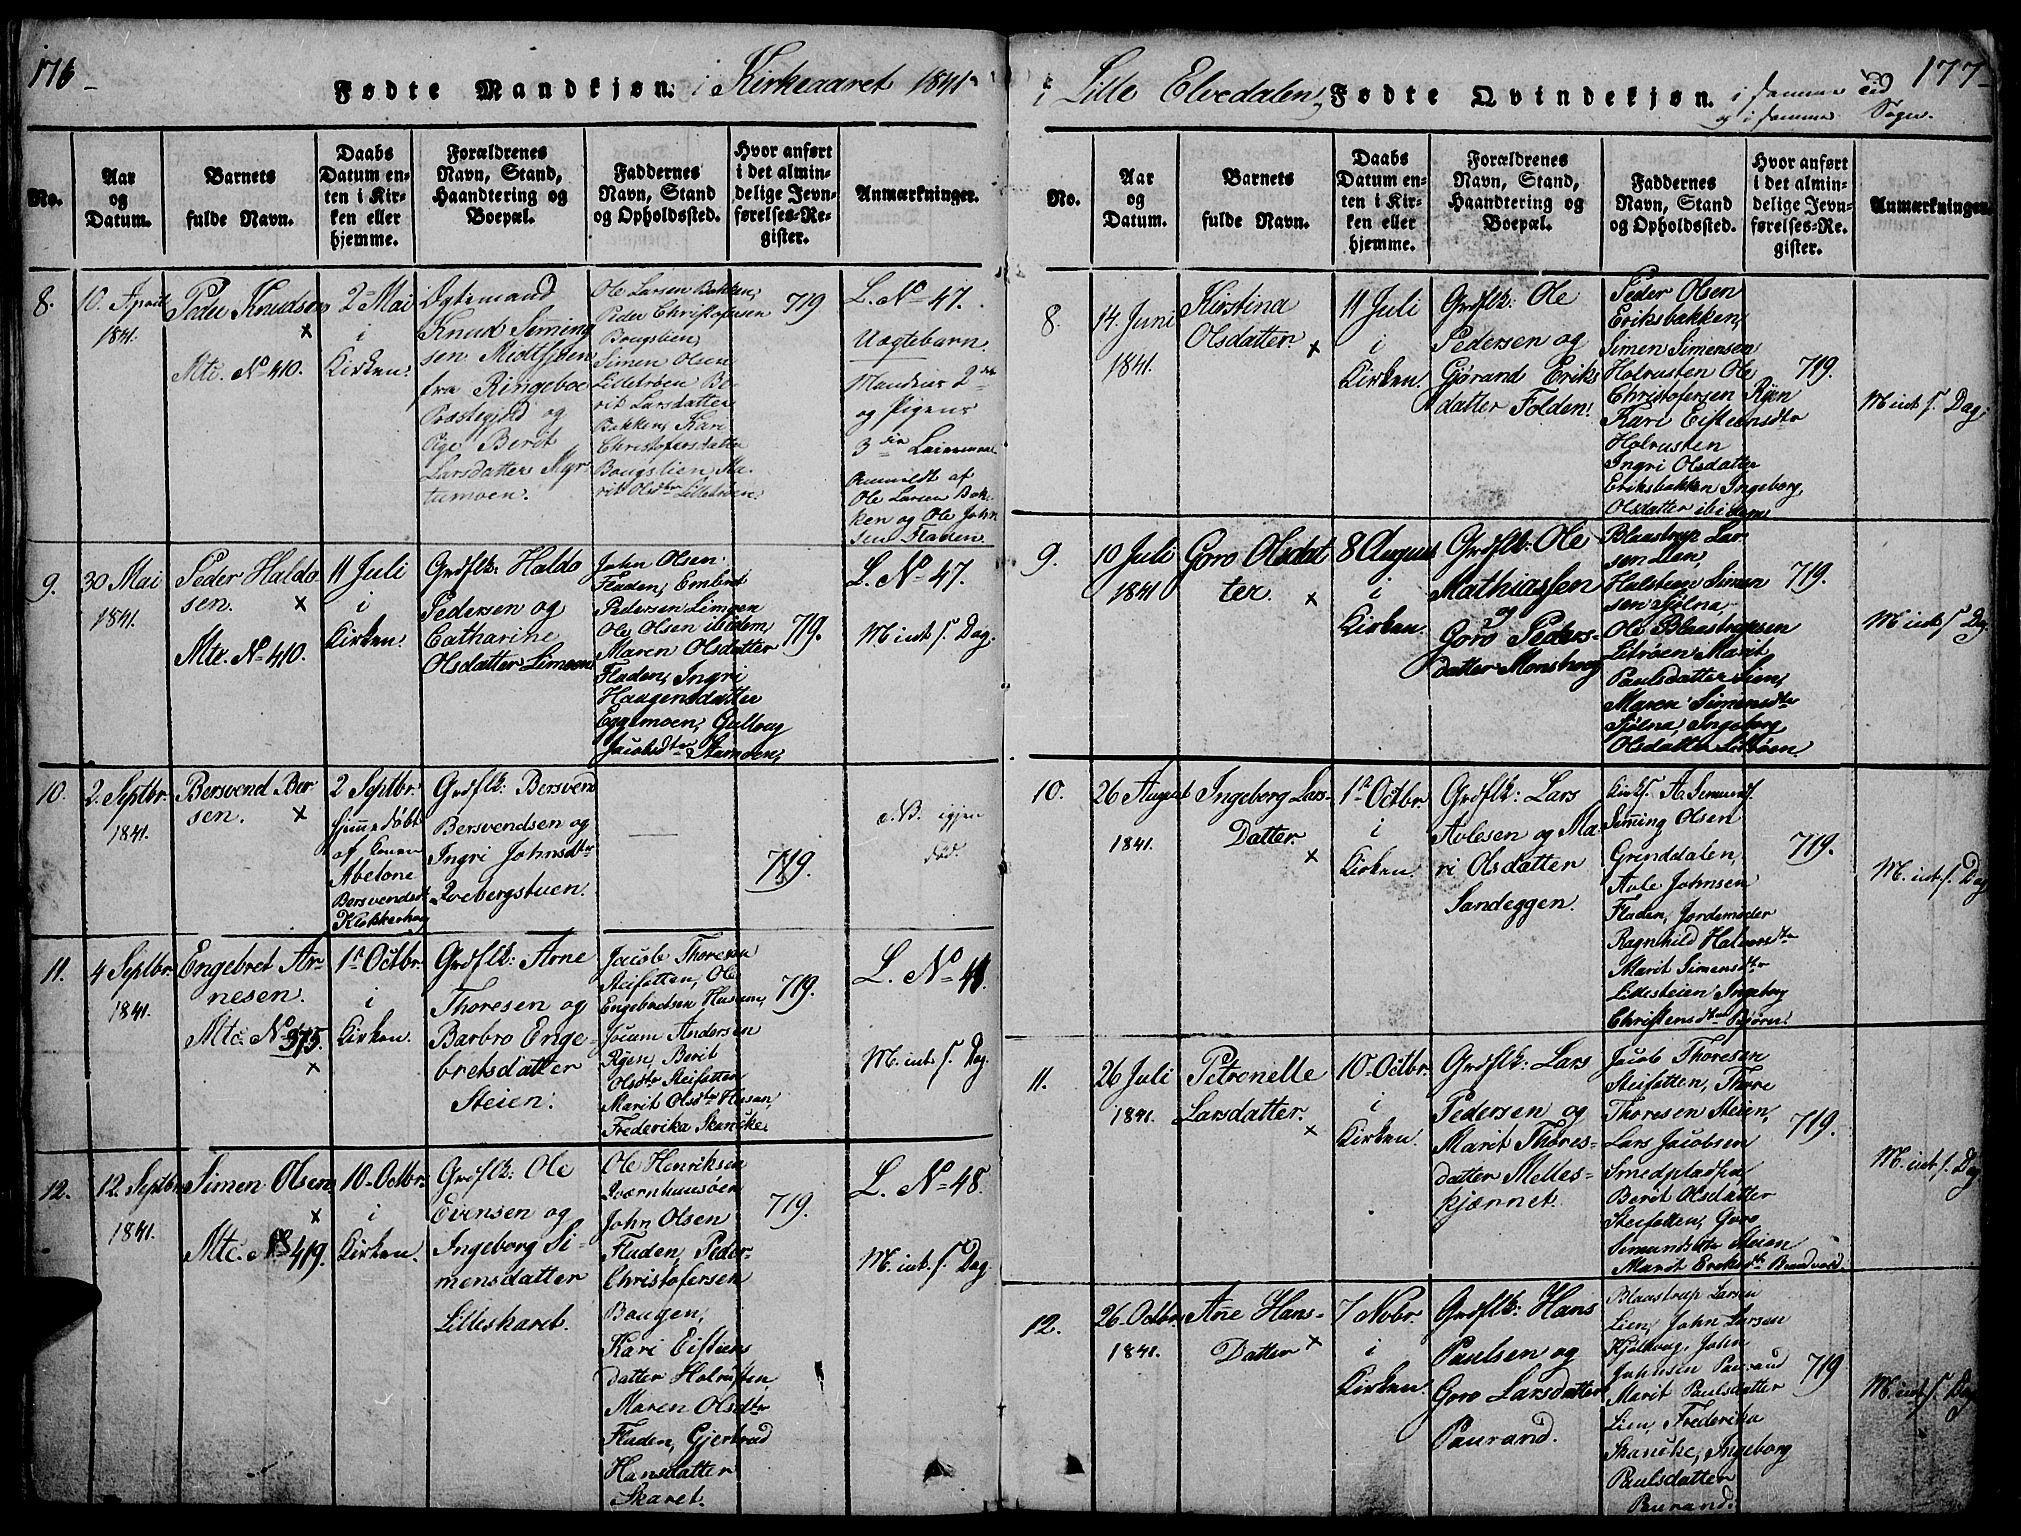 176
Fødte Mandkjøn. i Kirkeaaret 1841
No.
Aar
og
Datum.
Barnets
fulde Navn.
Daabs
Datum en-
ten i Kir-
ken eller
hjemme.
Forældrenes
Navn, Stand,
Haandtering og
Boepæl.
Faddernes
Navn, Stand
og Opholdssted.
Hvor anført
i det almin-
delige Jevn-
førelses-Re-
gister.
Anmærkninger.
8.
10. April
1841.
Peder Knudsen
×
Mtc. No 410.
2 Mai
i
Kirken.
Ogtemand
Knud Siming
sen
fra Ringeboe
Præstegjeld og
Pige Berit
Larsdatter Myr
tumoen.
Ole Larsen Bakken,
Peder Christofersen
Bougslien,
Simen Olsen
Lilletrøen Be
rit Larsdatter
Bakken, Kari
Christofersdatter
Bougslien Ma
rit Olsdtr Lilletrøen
719
L. No 47.
Uægtebarn.
Mandens 2den
og Pigens
3die Leiermaal
Anmeldt af
Ole Larsen Bak
ken og Ole John
sen Fladen.
9.
30 Mai
1841.
Peder Haldo
sen. ×
Mtc. No 410.
11 Juli
i
Kirken.
Grdflk: Haldo
Pedersen og
Catharine
Olsdatter Limoen
John Olsen
Fladen, Embret
Pedersen Limoen
Ole Olsen ibidem,
Maren Olsdatter
Fladen, Ingri
Haagensdatter
Eggemoen, Gullaug
Jacobsdtr Steimoen,
719.
L. No 47.
M. int. f. Dag.
10.
2. Septbr.
1841.
Bersvend Ber
sen. ×
2 Septbr.
hjemedøbt
af Konen
Abelone
Bersvendsdt
Klokkerhoug
Grdflk: Bersvend
Bersvendsen og
Ingri Johnsdtr
Qvebergstuen.
719.
N.B. igjen
død.
11.
4 Septbr.
1841.
Engebret Ar
nesen.
Mtc. No 375.
×
1st Octbr.
i
Kirken.
Grdflk: Arne
Thoresen og
Barbro Enge-
bretsdatter
Steien.
Jacob Thoresen
Steifetten, Ole
Engebretsen Husum,
Jocum Andersen
Ryen Berit
Olsdtr Steifetten
Marit Olsdtr Husum,
Frederika Skancke.
719.
L. No 41.
M. int. f. Dag.
12.
12. Septbr
1841.
Simen Olsen
×
Mtc. No 419.
10 Octbr.
i
Kirken.
Grdflk: Ole
Evensen og
Ingeborg Si-
mensdatter
Lilleskaret.
Ole Henriksen
Qvernhuusøen
John Olsen
Fladen, Peder
Christofersen
Bougen,
Kari Eistens
datter Holrusten,
Maren Olsdtr
Fladen, Gjertrud
Hansdatter
Skaret.
719.
L. No 48.
M. int. f. Dag.
i Lille Elvedalen, Fødte Qvindekjøn. i samme Tid
og i samme Sogn.
177
No.
Aar
og
Datum.
Barnets
fulde Navn.
Daabs
Datum en-
ten i Kir-
ken eller
hjemme.
Forældrenes
Navn, Stand,
Haandtering og
Boepæl.
Faddernes
Navn, Stand
og Opholdssted.
Hvor anført
i det almin-
delige Jevn-
førelses-Re-
gister.
Anmærkninger.
8.
14. Juni
1841.
Kirstina
Olsdatter ×
11 Juli
i
Kirken.
Grdflk: Ole
Pedersen og
Gjørand Eriks
datter Folden.
Peder Olsen
Eriksbakken,
Simen Simensen
Holrusten Ole
Christofersen Ryen
Kari Eisteensdtr
Holrusten
Ingri Olsdatter
Eriksbakken Ingeborg
Olsdatter ibidem
719.
M int. f. Dag.
9.
10 Juli
1841
Goro Olsdat
ter. ×
8 August
i
Kirken.
Grdflk: Ole
Mathiassen
og
Goro Peders-
datter Monshoug
Blaastrup Lar
sen Lien,
Halsteen Simen
sen Sjølna,
Ole Blaastrupsen
Litrøen Marit
Paulsdatter Lien,
Maren Simensdtr
Sjølna, Ingeborg
Olsdatter Litrøen
719.
M int. f. Dag.
10.
26 August
1841.
Ingeborg Lars-
Datter. ×
1st Octbr
i
Kirken.
Grdflk: Lars
Avlesen og Ma
ri Olsdatter
Sandeggen.
Kirks. A. Semund.
Siming Olsen
Grinddalen,
Avle Johnsen
Fladen, Jordemoder
Ragnhild Halvorsdtr
Marit Simensdtr
Lillesteien Ingeborg
Christensdtr Bjøren.
719.
M. int. f. Dag.
11.
26 Juli
1841.
Petronelle
Larsdatter. ×
10 Octbr.
i
Kirken.
Grdflk: Lars
Pedersen og
Marit Thores-
datter Melles-
kjærnet.
Jacob Thoresen
Steifetten, Thore
Thoresen Steien,
Lars Jacobsen
Smedpladsen,
Berit Olsdatter
Steifetten, Goro
Simundsdtr Steien
Marit Eriksdtr Brandvold.
719.
M. int. f. Dag.
12.
26 Octbr.
1841.
Ane Hans-
Datter ×
7 Novbr.
i
Kirken.
Grdflk: Hans
Paulsen og
Goro Larsdatter
Paurand.
Blaastrup Larsen
Lien, John Larsen
Kjølhoug, John
Johnsen Paurand
Marit Paulsdatter
Lien, Frederika
Skancke, Ingeborg
Paulsdatter
Paurand.
719
M. int. f. Dag.